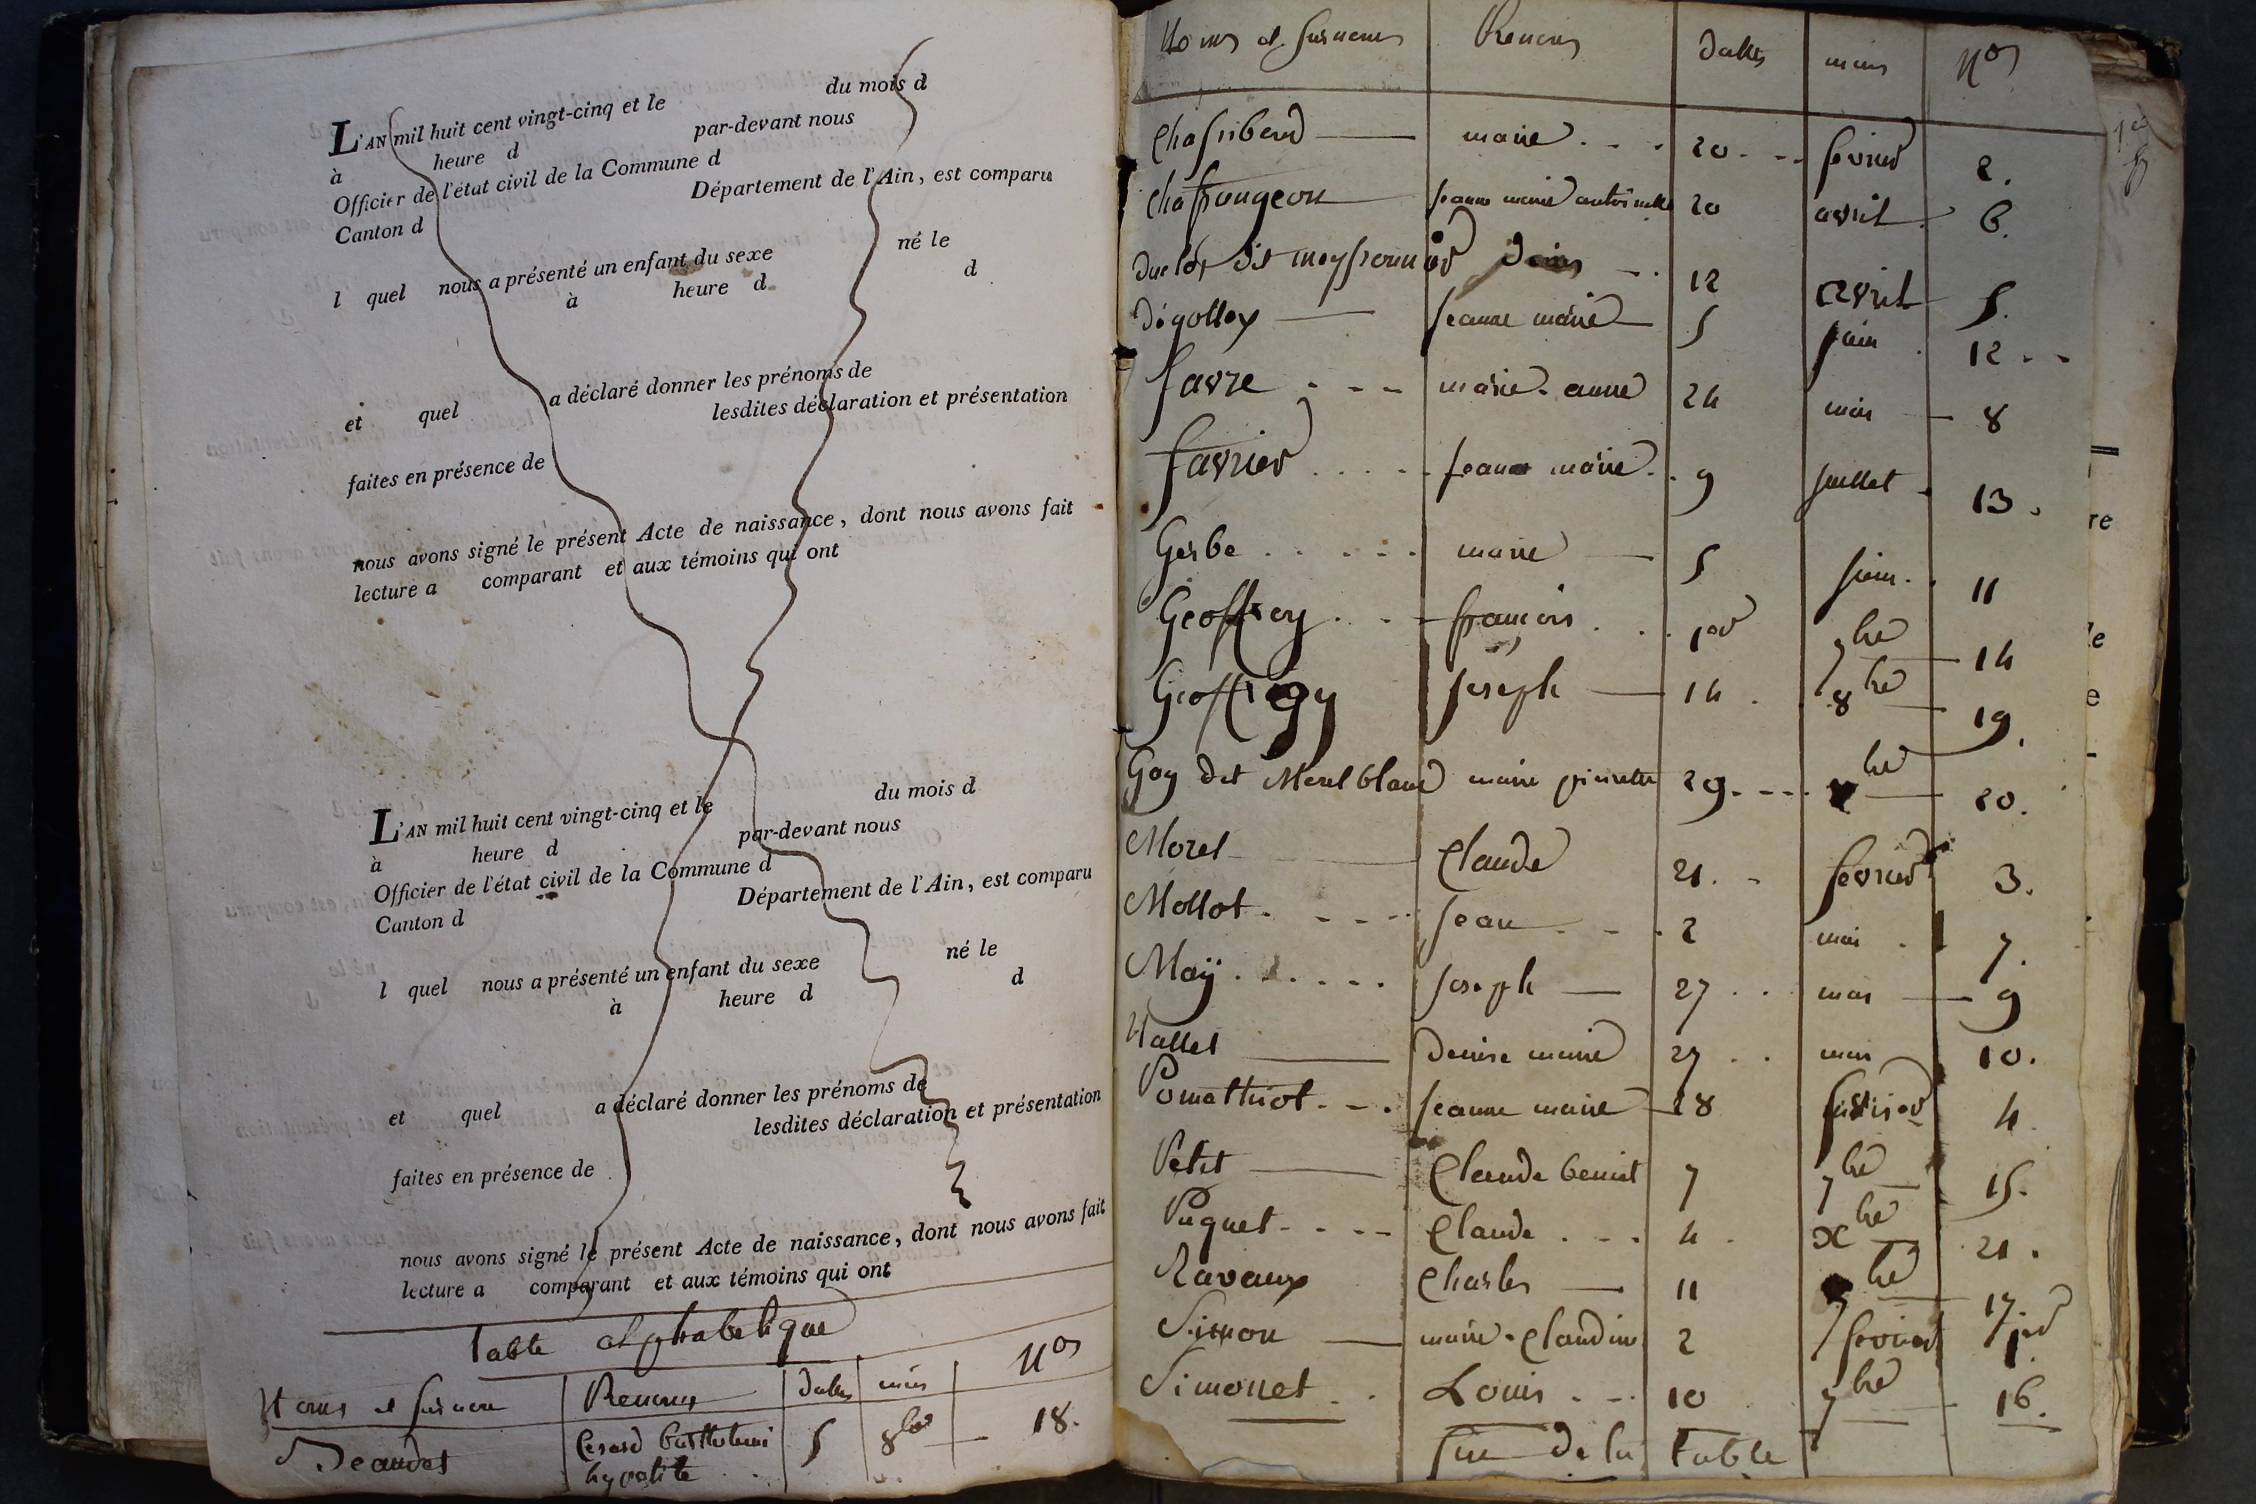 L'AN mil huit cent vingt-cinq et le du mois d
à heure d par-devant nous
Officier de l'état civil de la Commune d
Canton d Département de l'Ain, est comparu
l quel nous a présenté un enfant du sexe né le
à heure d d
et quel a déclaré donner les prénoms de
lesdites déclaration et présentation
faites en présence de
nous avons signé le présent Acte de naissance, dont nous avons fait
lecture a comparant et aux témoins qui ont
L'AN mil huit cent vingt-cinq et le du mois d
à heure d par-devant nous
Officier de l'état civil de la Commune d
Canton d Département de l'Ain, est comparu
l quel nous a présenté un enfant du sexe né le
à heure d d
et quel a déclaré donner les prénoms de
lesdites déclaration et présentation
faites en présence de
nous avons signé le présent Acte de naissance, dont nous avons fait
lecture a comparant et aux témoins qui ont
Table alphabetique
Noms et surnoms Prenoms dates mois Nos
Beaudet Cesard barthelemi 5 8bre 18.
hypolite
Noms et surnoms Prenoms dates mois Nos
Chassiboud marie 20 fevrier 2.
Chaffrongeon jeanne marie antoinette 20 avril 6.
Duclos dit meyssonnier denis 12 avril 5.
dégolley jeanne marie 5 juin 12
favre marie anne 24 mai 8
favrier jeanne marie 9 juillet 13.
Gerbe marie 5 juin 11
Geoffroy françois 1er 7bre 14
Geoffroy joseph 14 8bre 19.
Goy dit Morel blanc marie pierrette 29 bre 20.
Morel Claude 21 fevrier 3.
Mollot jean 2 mai 7.
Maÿ joseph 27 mai 9
Nallet denise marie 27 mai 10.
Pomathiot jeanne marie 28 fevrier 4
Petit Claude benoit 7 7bre 15.
Puguet Claude 4 xbre 21.
Ravaux Charles 11 7bre 17.
Simon marie Claudine 2 fevrier 1er
Simonet Louis 10 7bre 16.
fin de la table
re
le
e